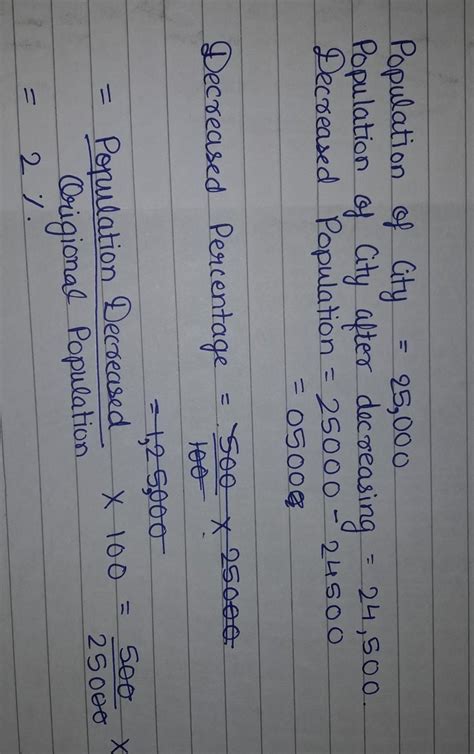 Population of City = 25,000
Population of City after decreasing = 24,500.
Decreased Population = 25000 - 24500
= 0500
Decreased Percentage = 500/100 × 25000
= 1,25,000
= Population Decreased/Origional Population × 100 = 500/25000 ×
= 2 %.